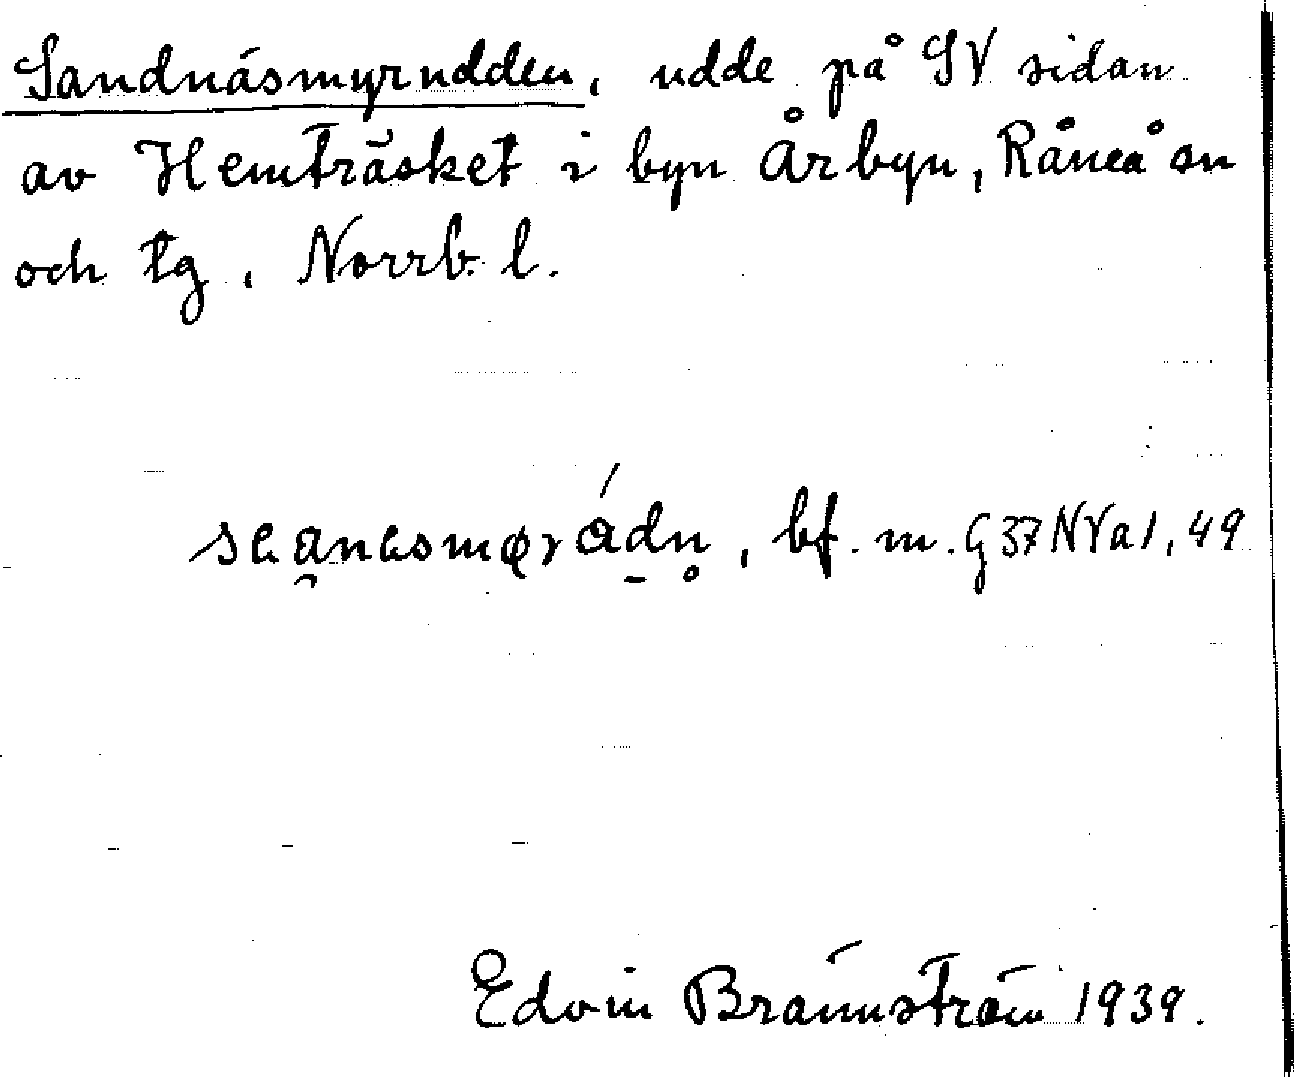 Sandnäsmyrudden, udde på SV sidan
av Hemträsket i byn Årbyn, Råneå sn
och tg, Norrb. l.
bf. m. G 37 NVa1, 49
Edvin Brännström 1939.